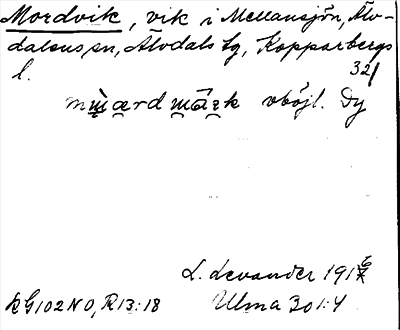 Mordvik, vik i Mellansjön, Älv-
dalens sn, Älvdals tg, Kopparbergs
l. 32/
vböjl. Dy
L. Levander 191
kG102NO, R13:18 Ulma 301:4